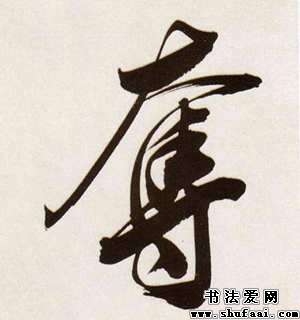 奪
书法爱网
www.shufaai.com